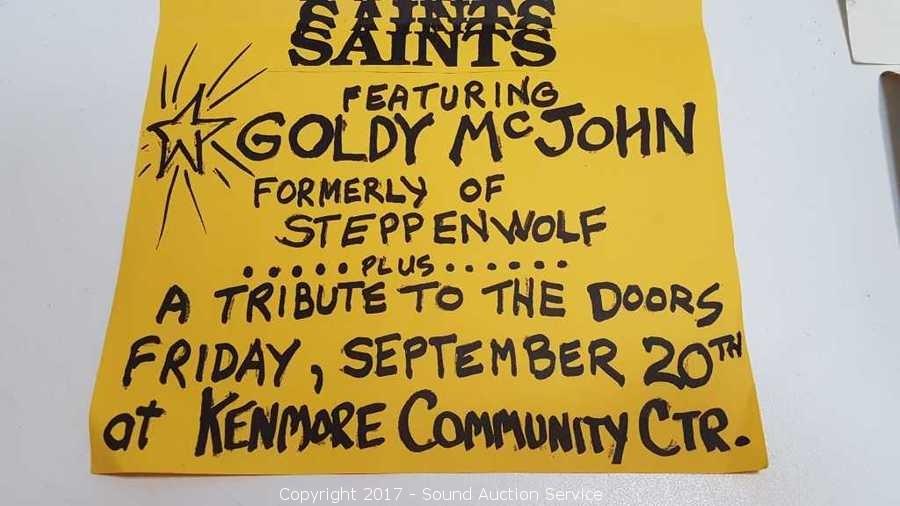 SAINTS
SAINTS
SAINTS
FEATURING
GOLDY McJOHN
FORMERLY OF
STEPPENWOLF
.....PLUS......
A TRIBUTE TO THE DOORS
FRIDAY, SEPTEMBER 20TH
at KENMORE COMMUNITY CTR.
Copyright 2017 - Sound Auction Service